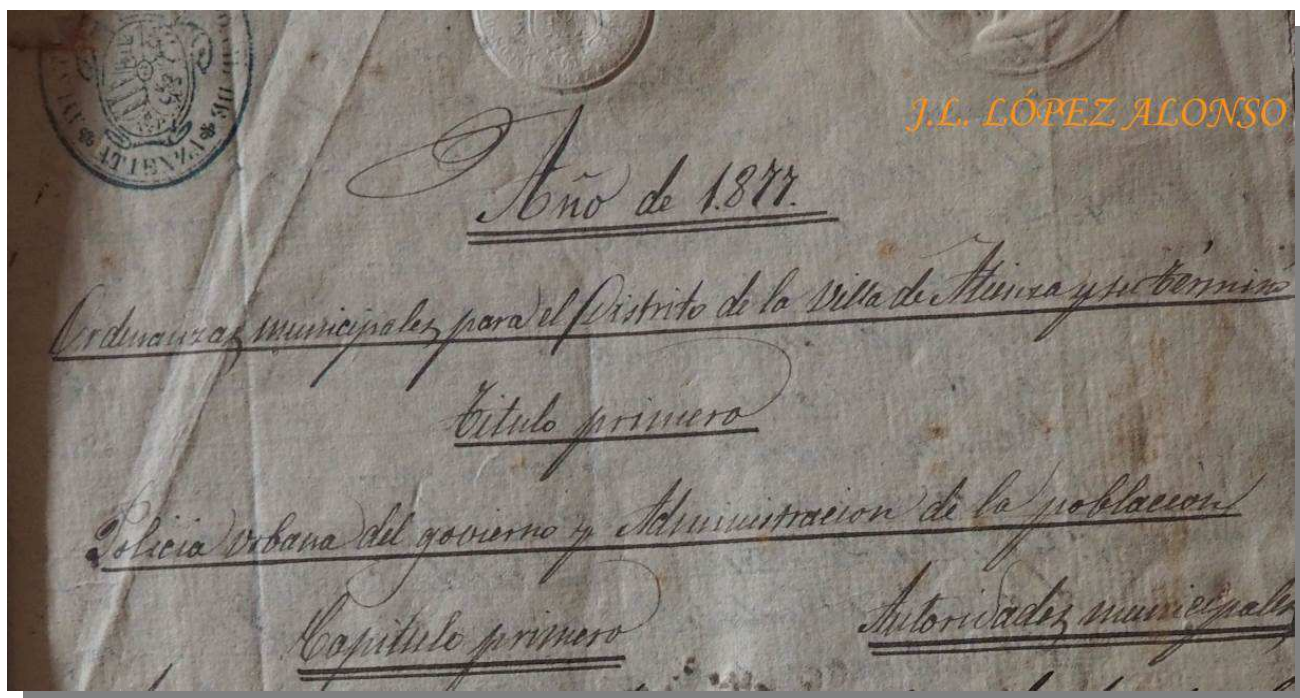 J.L. LÓPEZ ALONSO
Año de 1.877.
Ordenanzas municipales para el Distrito de la Villa de Atienza y su término
Titulo primero
Policia Urbana del govierno y Administracion de la poblacion
Capitulo primero Autoridades municipales